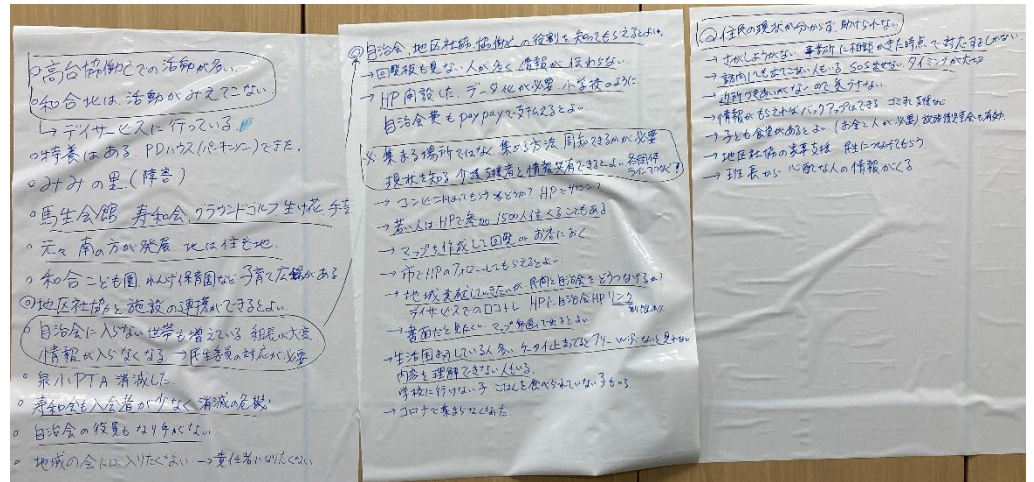 ○高台協働とでの活動が多い
○和合北は、活動がみえてこない
↳デイサービスに行っている
○特養はある PDハウス(パーキンソン)できた。
○みみの里(障害)
○馬生会館 寿和会、グラウンドゴルフ 生け花、手芸
○元々南の方が発展 北は住宅地
○和合こども園 れんげ保育園など 子育て広場がある
◎地区社協と施設の連携ができるとよい
○自治会に入らない世帯も増えている 組長が大変
情報が入らなくなる →民生委員の対応が必要
○泉小PTA消滅した
○寿和会も入会者が少なく消滅の危機
○自治会の役員もなり手がない
○地域の会には入りたくない→責任者になりたくない
◎自治会、地区社協、協働との役割を知ってもらえるとよい
→回覧板も見ない人が多く情報が伝わらない
→HP開設した、データ化が必要、小学校のように
自治会費もpaypayで支払えるとよい
※集まる場所ではなく集める方法 周知できるかが必要
現状を知る、介護支援者と情報共有できるとよい 各団体ラインでつなぐ!
→コンビニに HPでサロン?
→若い人はHPで参加 1500人位くることもある
→マップを作成して回覧 お店におく
→市でHPのフォローしてもらえるとよい
→地域支援していきたいが、民間と自治会をどうつなげるか?
デイサービスでのロコトレ HPに自治会HPリンク
→書面だと見にくい、マップ 動画で出るとよい
→生活困りしている人多い ケータイ止まってるとフリーWiFiないと見れない
内容を理解できない人もいる
学校に行けない子 ごはんを食べられていない子もいる
→コロナで集まらなくなった
◎住民の現状が分からず、助けられない
→さがしようがない 事務所に相談がきた時点で対応するしかない
→訪問しても出てこない人もいる SOS出せない、タイミングが大切
→近所づきあいがないので気づけない
→情報がもらえればバックアップはできる ゴミ出し支援など
→子ども食堂があるとよい(お金と人が必要) 放課後児童会も有効
→地区社協の家事支援 につなげてもらう
→班長から心配な人の情報がくる